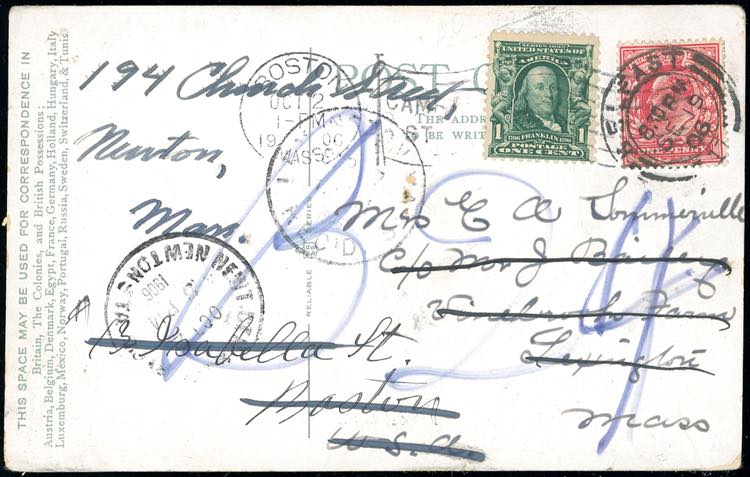 THIS SPACE MAY BE USED FOR CORRESPONDENCE IN
Britain, The Colonies, and British Possessions;
Austria, Belgium, Denmark, Egypt, France, Germany, Holland, Hungary, Italy
Luxemburg, México, Norway, Portugal, Russia, Sweden, Switzerland, & Tunis
POST
THE ADDR
BE WRIT
RELIABLE
SERIES
194 Church Street
Newton,
Mass.
BOSTON
OCT 2
1-PM
19
MASS
SERIES 1902
UNITED STATES OF
AMERICA
1
1
1706 FRANKLIN 1790
POSTAGE
ONE CENT
BELFAST
8 30 PM
SP 19
06
ONE PENNY
Mrs E A Sommerville
c/o Mrs J Bailey
Farm
Lexington
Mass
13 Isabella St.
Boston
U.S.A.
NEWTON STA
OCT
1906